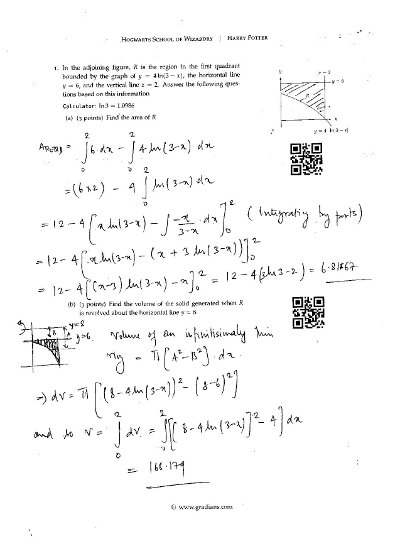 HOGWARTS SCHOOL OF WIZARDRY | HARRY POTTER
1. In the adjoining figure, R is the region in the first quadrant
bounded by the graph of y = 4 ln(3 − x), the horizontal line
y = 6, and the vertical line x = 2. Answer the following ques-
tions based on this information
Calculator: ln 3 = 1.0986
(a) (3 points) Find the area of R
y
x = 2
y = 6
R
x
y = 4 ln(3 − x)
= ∫₀² 6 dx − ∫₀² 4 ln(3-x) dx
= (6×2) − 4 ∫₀² ln(3-x) dx
= 12 − 4 [x ln(3-x) − ∫ -x/(3-x) · dx]₀² (Integrating by parts)
= 12 − 4 [x ln(3-x) − (x + 3 ln(3-x))]₀²
= 12 − 4 [(x-3) ln(3-x) − x]₀² = 12 − 4(3ln3 − 2) = 6.81667
(b) (3 points) Find the volume of the solid generated when R
is revolved about the horizontal line y = 8.
y=8
y=6
Volume of an infinitisimaly thin
ring = π [A² − B²] · dx
⇒ dv = π [(8 − 4 ln(3-x))² − (8-6)²]
and so V = ∫₀² dv = ∫₀² [[8 − 4 ln(3-x)]² − 4] dx
= 168.179
© www.gradians.com